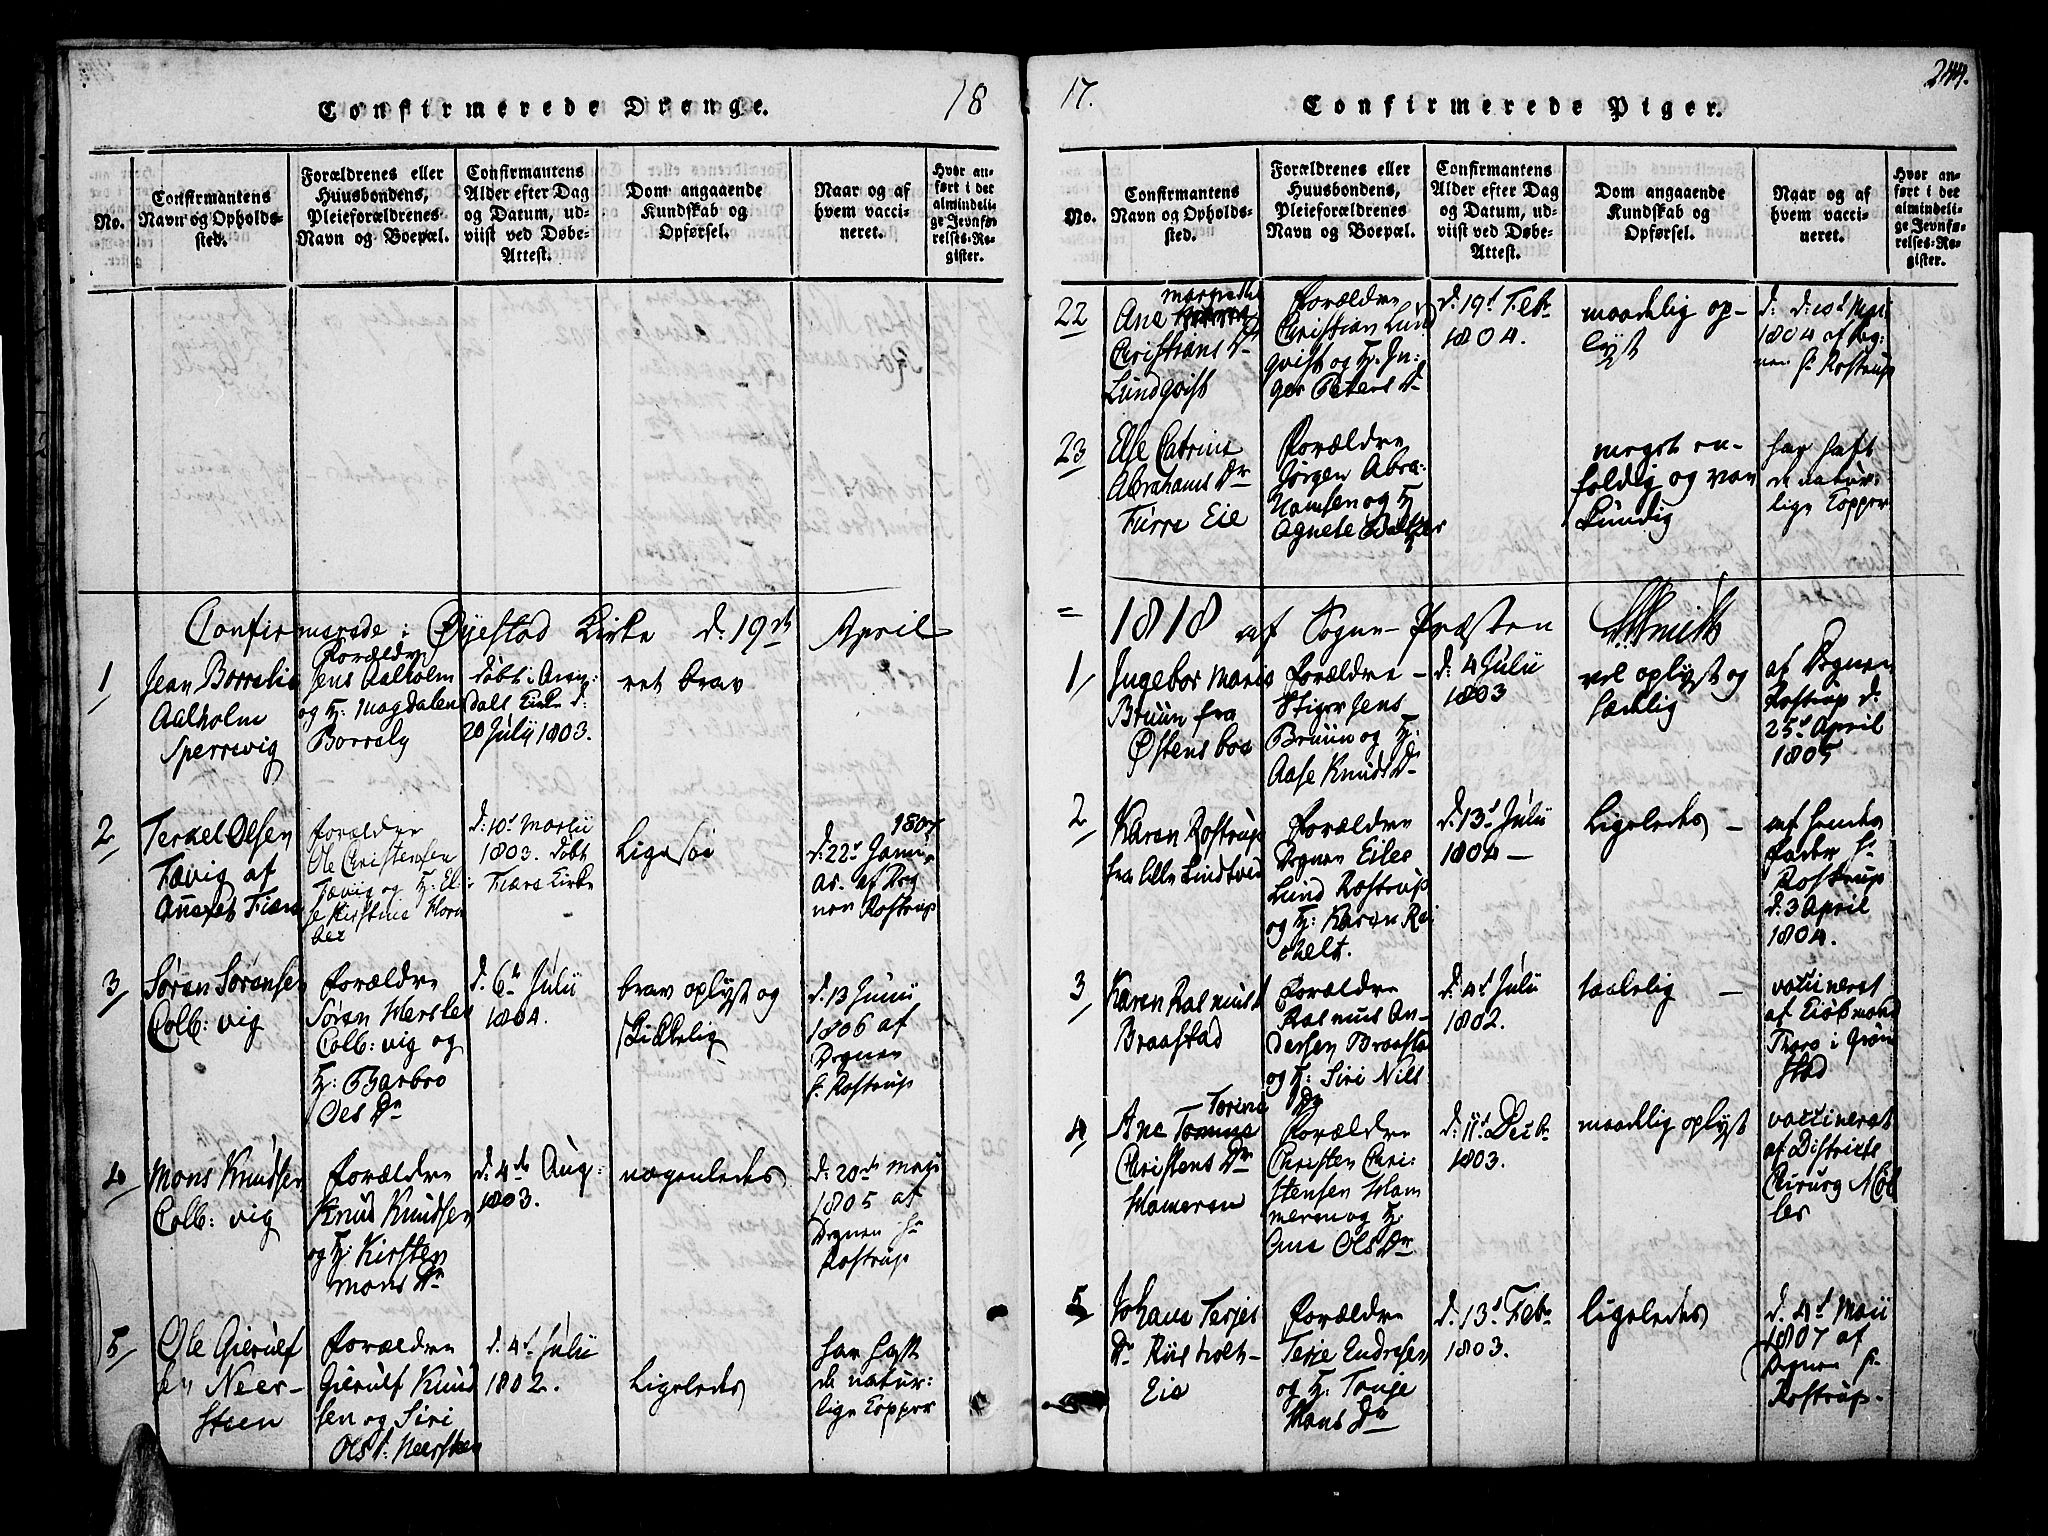 Confirmerede Drenge.
18
No.
Confirmantens
Navn og Opholds-
sted.
Forældrenes eller
Huusbondens,
Pleieforældrenes
Navn og Boepæl.
Confirmantens
Alder efter Dag
og Datum, ud-
viist ved Døbe-
Attest.
Dom angaaende
Kundskab og
Opførsel.
Naar og af
hvem vacci-
neret.
Hvor an-
ført i det
almindeli-
ge Jevnfø-
relses-Re-
gister.
Confirmerede i Øyestad Kirke d: 19de April
1
Jean Borrelie
Aalholm
Sperrevig
Forældre
Jens Aalholm
og H: Magdalen
Borrely
døbt i Aren-
dals Kirke d:
20 Julij 1803.
ret brav
2
Terkel Olsen
Fævig af
Annexet Fiære
Forældre
Ole Christensen
Fævig og H: El-
se Kirstine Horn
ber
d: 10d Martii
1803. døbt
Fiære Kirke
Ligesoe
1807
d: 22d Janu-
ar. af Deg
nen Rostrup
3
Søren Sørensen
Colb: vig
Forældre
Søren Herslev
Colb: vig og
H: Barbro
Oles Dr
d: 6te Julii
1804.
brav oplyst og
skikkelig
d. 13 Junii
1806 af
Degnen
Hr Rostrup
4
Mons Knudsen
Colb: vig
Forældre
Knud Knudsen
og H: Kirsten
Mons Dr
d. 4de Aug:
1803.
nogenledes
d: 20de Maji
1805 af
Degnen Hr
Rostrup
5
Ole Gierulf
en Neer-
steen
Forældre
Gierulf Knud
sen og Siri
Ols D: Neersteen
d. 4d Julii
1802.
Ligeledes
har haft
de natur:
lige Kopper
17.
Confirmerede Piger.
244.
No.
Confirmantens
Navn og Opholds-
sted.
Forældrenes eller
Huusbondens,
Pleieforældrenes
Navn og Boepæl.
Confirmantens
Alder efter Dag
og Datum, ud-
viist ved Døbe-
Attest.
Dom angaaende
Kundskab og
Opførsel.
Naar og af
hvem vacci-
neret.
Hvor an-
ført i det
almindeli-
ge Jevnfø-
relses-Re-
gister.
22
Margrethe
Ane
Christians Dr
Lundqvist
Forældre
Christian Lund
qvist og H. In:
ger Peters Dr
d: 19d Febr
1804.
maadelig op-
lyst
1804 af Deg:
nen Hr Rostrup
23
Else Catrine
Abrahams Dr
Furre Eie
Forældre
Jørgen Abra:
hamsen og H
Agnete
meget en-
foldig og van
kundig
har haft
de natur:
lige Kopper
= 1818 af Sogne-Præsten Smith
1
Ingebor Marie
Bruun fra
Østensboe
Forældre -
Stiger Jens
Bruun og H:
Aase Knuds Dr
d: 4 Julii
1803
vel oplyst og
sædelig
af Degnen
Rostrup d:
25d April
1805
2
Karen Rostrup
fra lille Lindtved
Forældre
Degnen Eiler
Lund Rostrup
og H: Karen Rei
chelt.
d: 13d Julii
1804 -
Ligeledes -
af hendes
Fader Hr
Rostrup
d. 3 April
1804.
3
Karen Rasmus D
Braastad
Forældre
Rasmus An-
dersen Braastad
og H: Siri Nils
Dr
d: 4d Julii
1802.
taalelig -
vaccineret
af Eiebmand
Thore i Grøm
stad
4
Torine
Ane
Christens Dr
Hameren
Forældre
Christen Chri-
stensen Ham
meren og H:
Ane Ols Dr
d: 11d Decbr
1803.
maadelig oplyst
vaccineret
af Districts
Chirurg Møl
ler
5
Johane Terjes
Dr Riisholt-
Eie
Forældre
Terje Endresen
og H: Tonje
Hans Dr
d. 13d Febr
1803.
ligeledes
d. 4d Maii
1807 af
Degnen Hr
Rostrup.